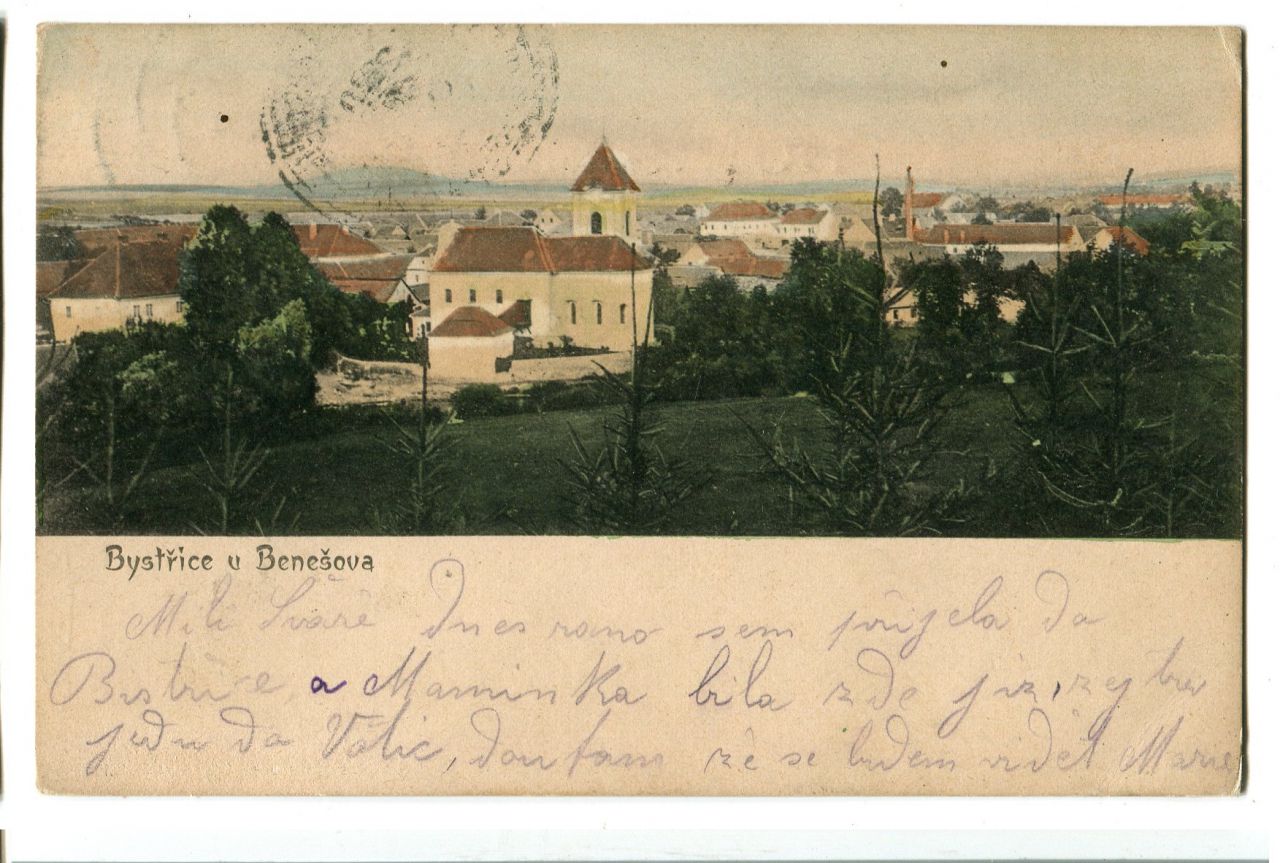 Bystřice u Benešova
Milí Sváře dnes rano sem přijela da
Bistřice a Maminka bila zde již,
jedu da Votic, doufam že se budem videt Marie